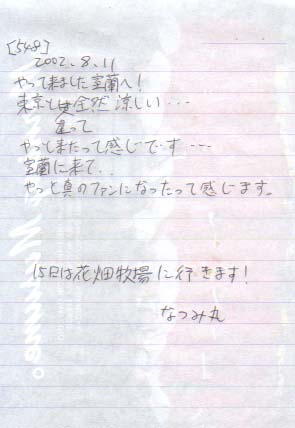 [548]
2002.8.11
やって来ました室蘭へ!
東京とは全然 涼しい・・・
違って
やっと来たって感じです・・・
室蘭に来て・・
やっと真のファンになったって感じます。
15日は花畑牧場に行きます!
なつみ丸